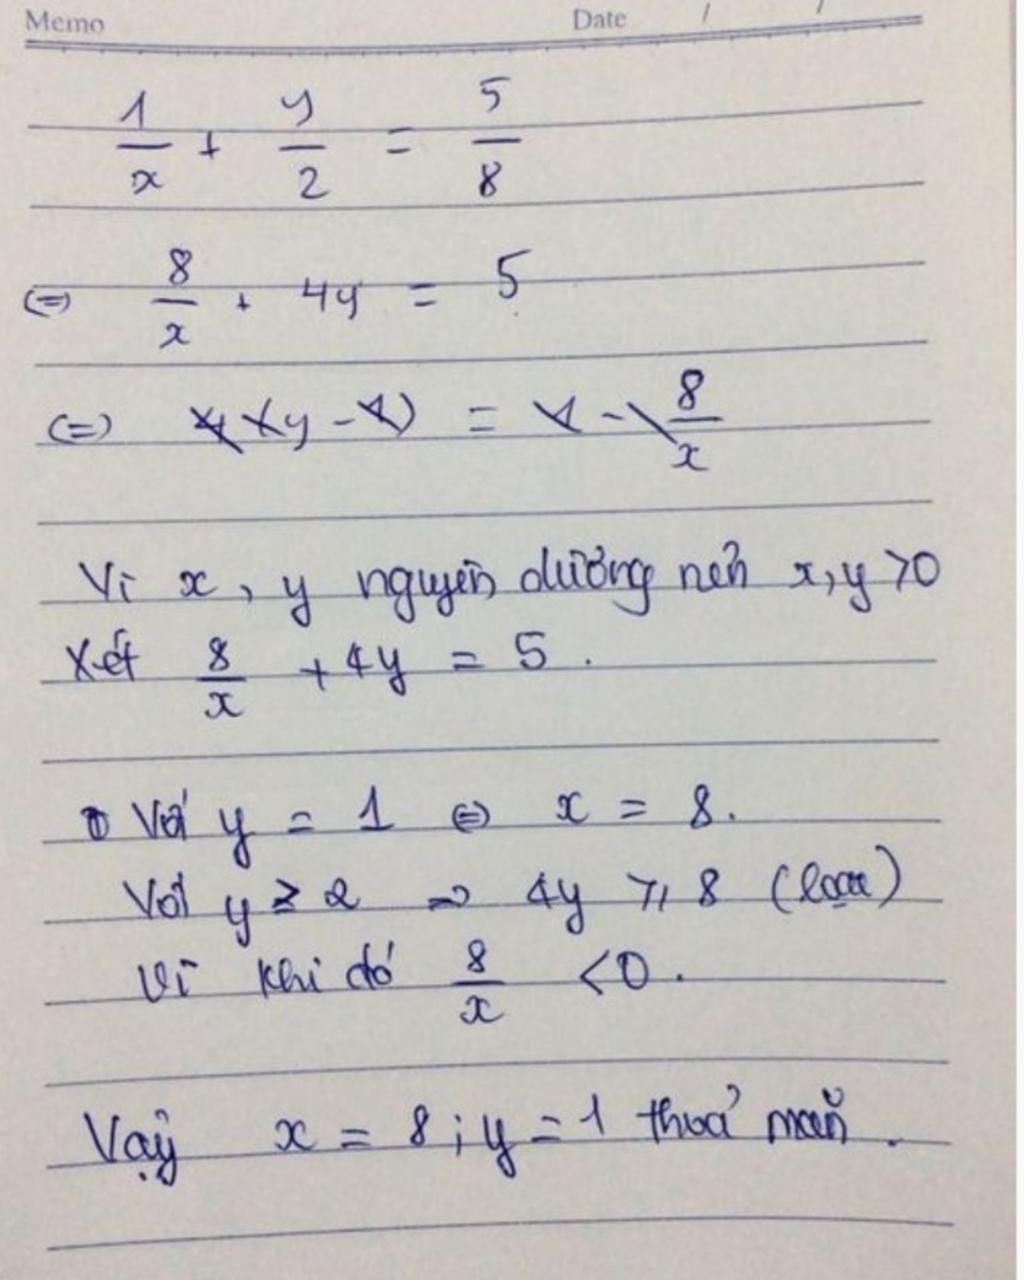 Memo Date / /
1/x + y/2 = 5/8
(=) 8/x + 4y = 5
(=) 4(y - 1) = 1 - 8/x
Vì x, y nguyên dương nên x, y >0
Xét 8/x + 4y = 5.
Với y = 1 (=) x = 8.
Với y ≥ 2 => 4y ≥ 8 (loại)
vì khi đó 8/x <0.
Vậy x = 8; y = 1 thoả mãn.